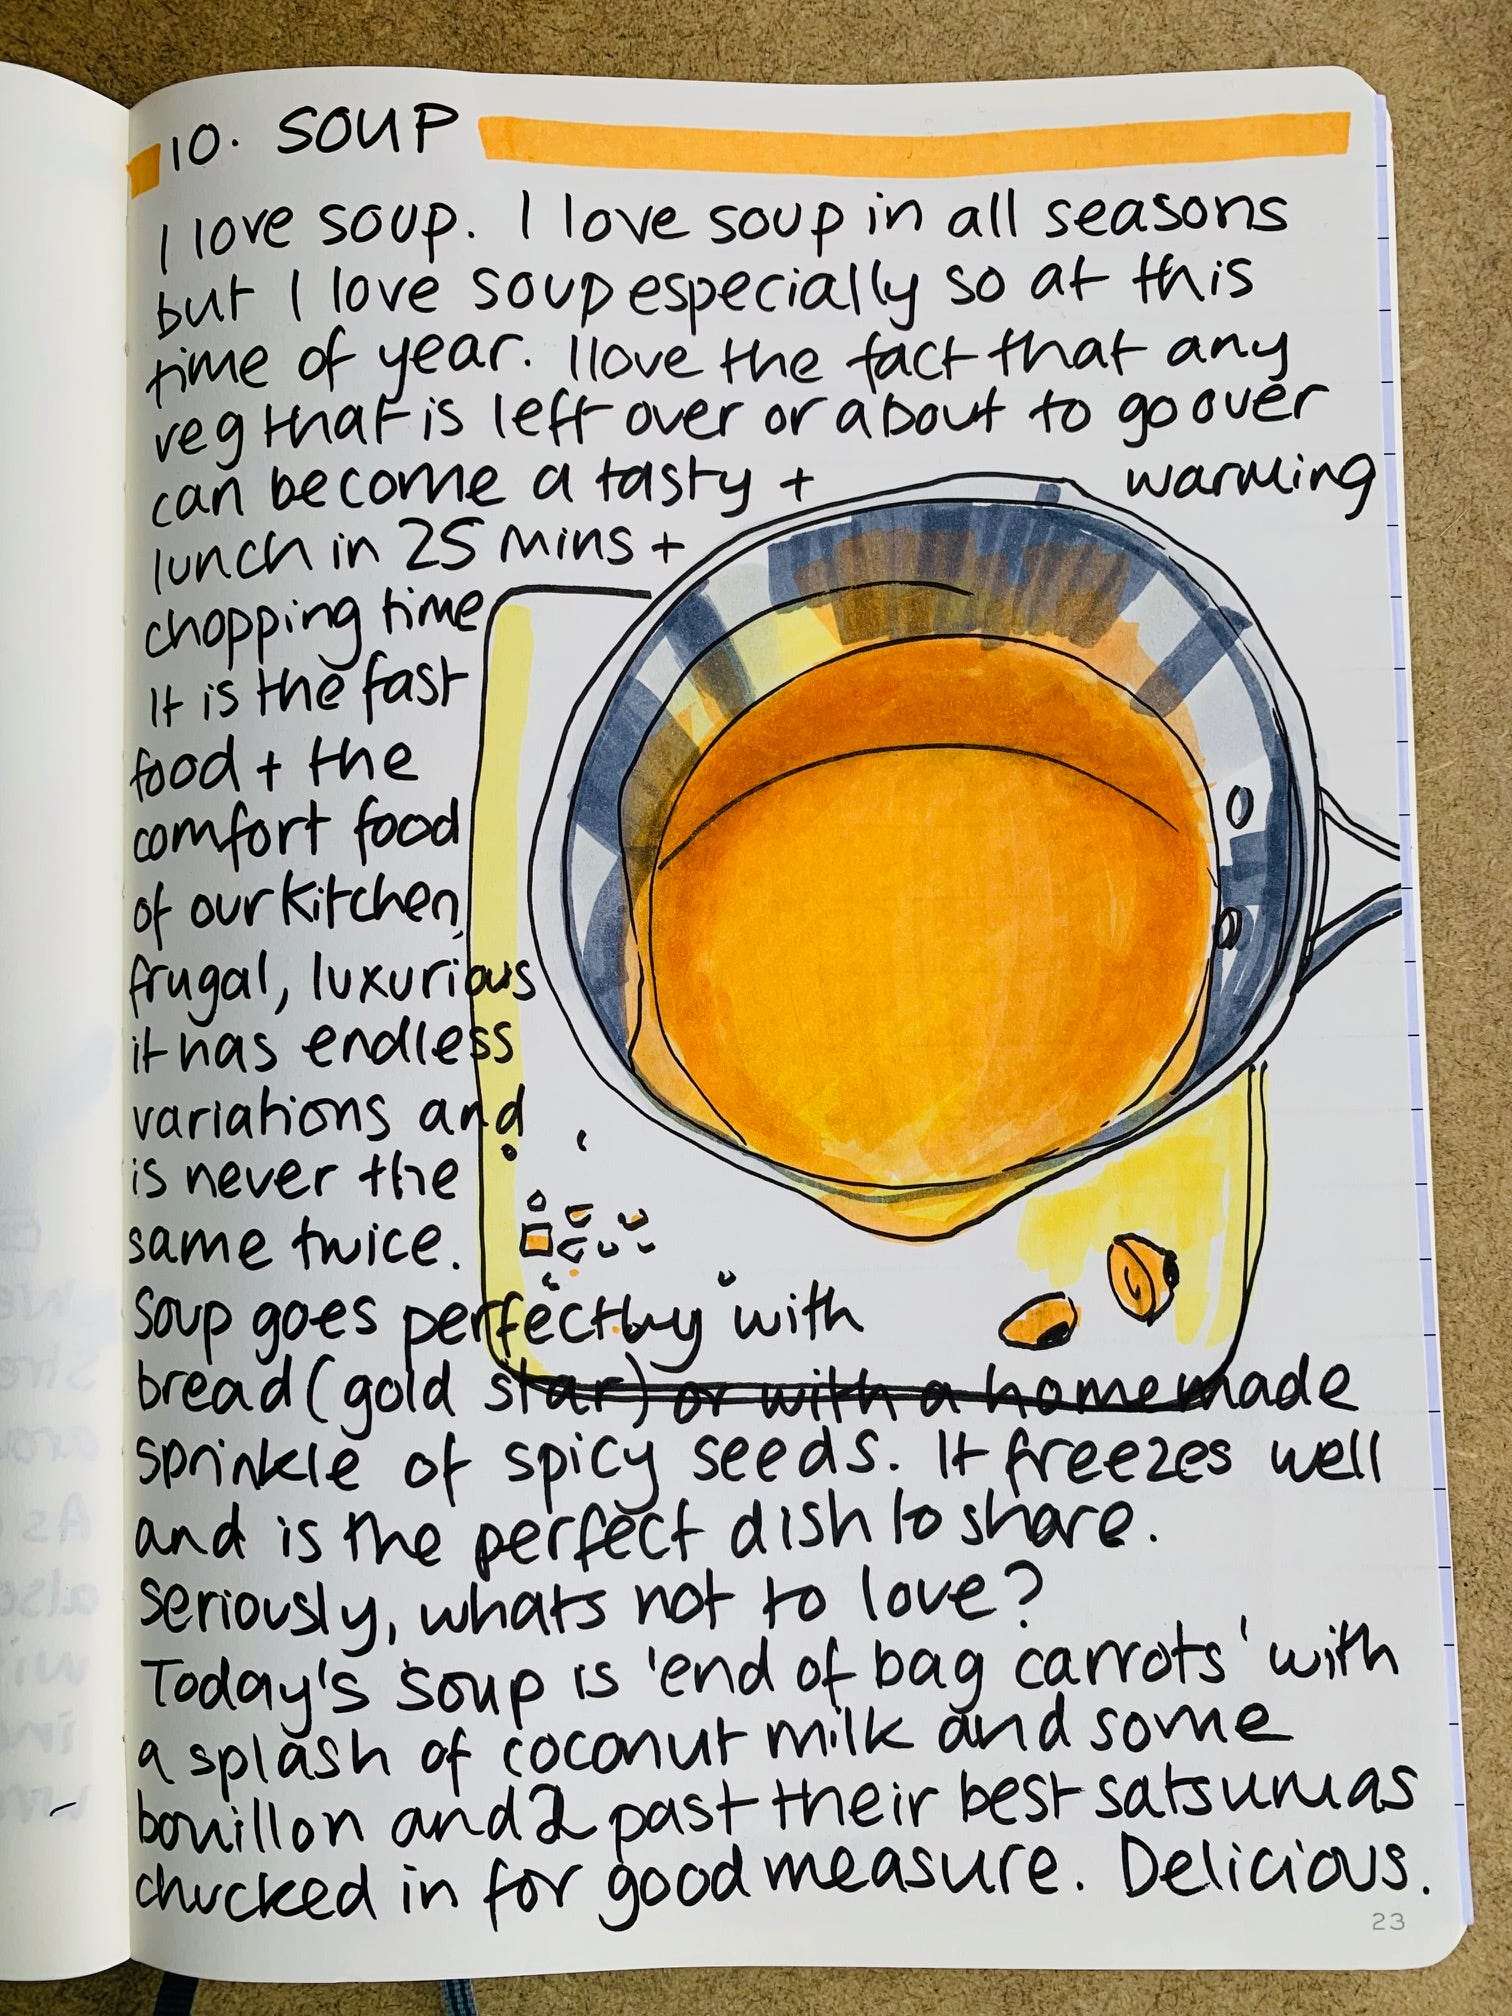 10. SOUP
I love soup. I love soup in all seasons
but I love soup especially so at this
time of year. I love the fact that any
veg that is left over or about to go over
can become a tasty + warming
lunch in 25 mins +
chopping time
It is the fast
food + the
comfort food
of our kitchen,
frugal, luxurious
it has endless
variations and
is never the
same twice.
Soup goes perfectly with
bread (gold star) or with a homemade
sprinkle of spicy seeds. It freezes well
and is the perfect dish to share.
Seriously, whats not to love?
Today's soup is 'end of bag carrots' with
a splash of coconut milk and some
bouillon and 2 past their best satsumas
chucked in for good measure. Delicious.
23